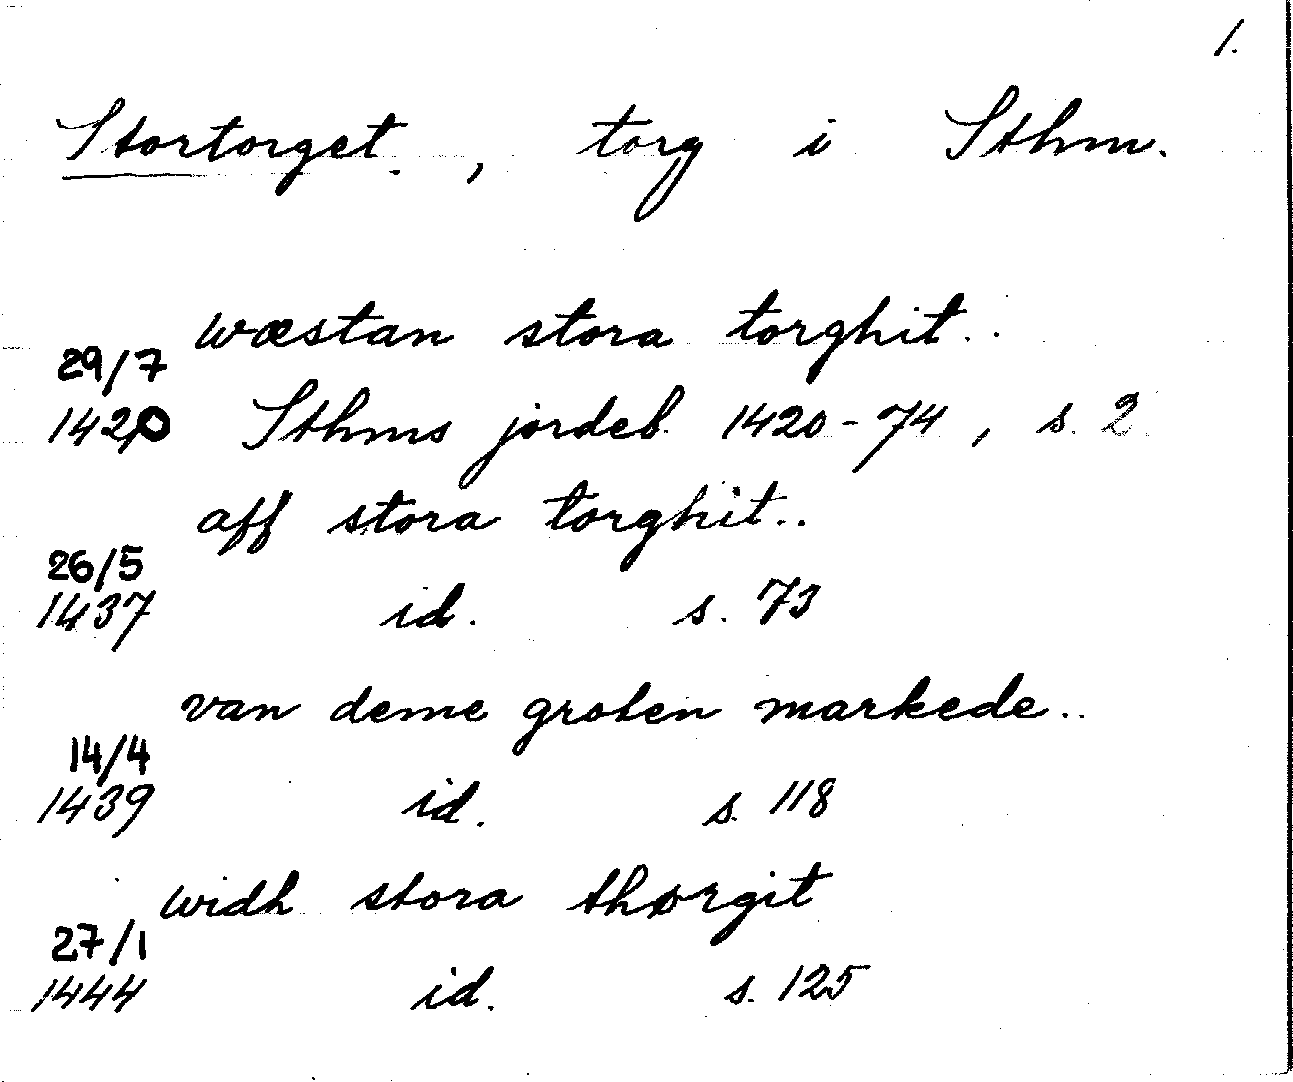 1.
Stortorget., torg i Sthm.
wæstan stora torghit..
29/7
1420 Sthms jordeb. 1420-74, s. 2
aff stora torghit..
26/5
1437 id. s. 73
van deme groten markede..
14/4
1439 id. s. 118
widh stora thorgit
27/1
1444 id. s. 125